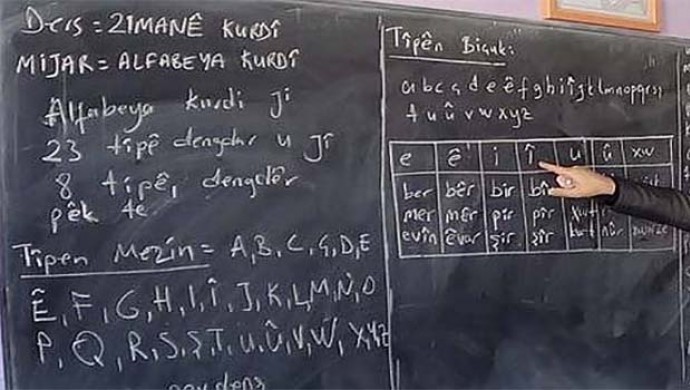 Ders = ZIMANÊ KURDÎ
MIJAR = ALFABEYA KURDÎ
Alfabeya kurdi ji
23 tîpê dengdar u Jî
8 tîpê, dengdêr
pêk te
Tîpen Mezin = A, B, C, Ç, D, E
Ê, F, G, H, I, Î, J, K, L, M, N, O
P, Q, R, S, Ş, T, U, Û, V, W, X, Y, Z
Tîpên Bicuk:
a b c ç d e ê f g h i î j k l m n o p q r s ş
t u û v w x y z
e ê i î u û xw
ber bêr bir bîr
mer mêr pir pîr
evîn êvar şir şîr kurt nûr